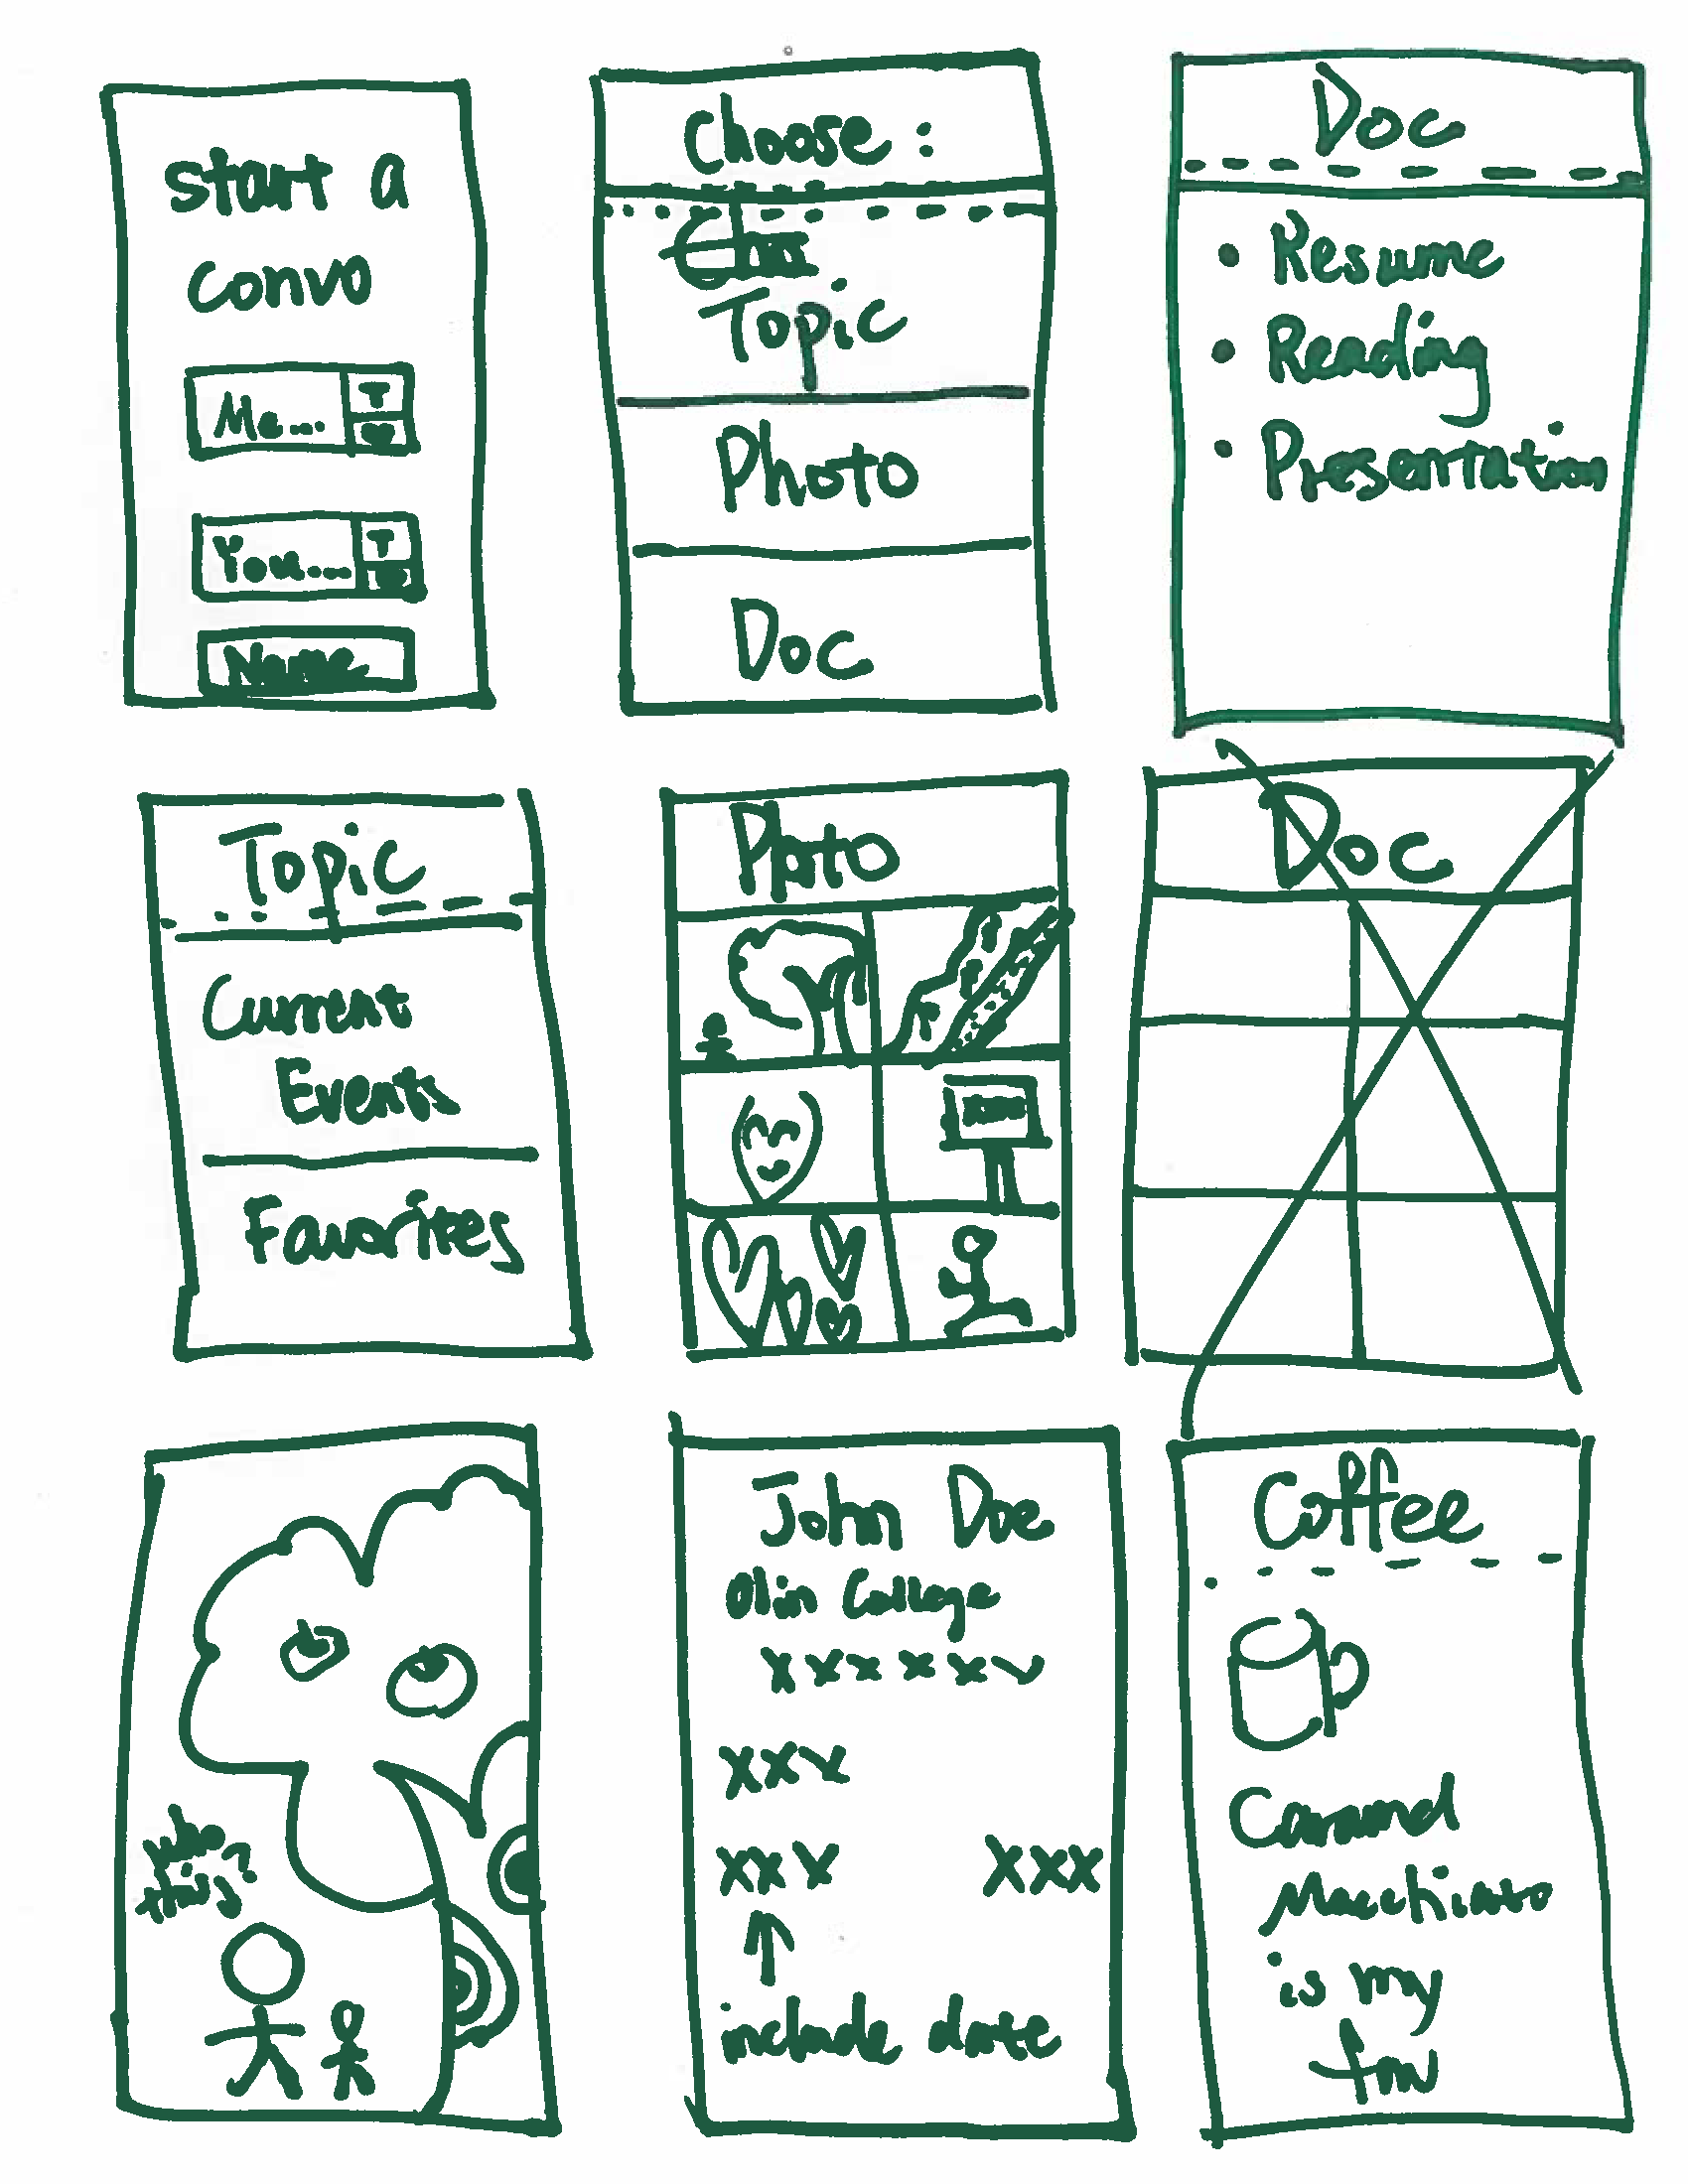 start a
convo
Me... T
You... T
Name
Choose:
Topic
Photo
Doc
Doc
• Resume
• Reading
• Presentation
Topic
Current
Events
Favorites
Photo
Doc
who
this?
John Doe
Olin College
xxxxxx
xxx
xxx xxx
include date
Coffee
Caramel
Macchiato
is my
fav